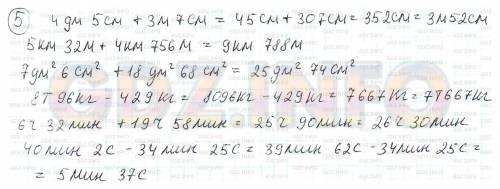 5 4 дм 5см + 3м 7см = 45см + 307см = 352см = 3м 52см
5км 32м + 4км 756м = 9км 788м
7дм² 6 см² + 18 дм² 68 см² = 25дм² 74см²
8т 96кг - 429кг = 8096кг - 429кг = 7667кг = 7т 667кг
6ч 32мин + 19ч 58мин = 25ч 90мин = 26ч 30мин
40мин 2с - 34мин 25с = 39мин 62с - 34мин 25с =
= 5мин 37с